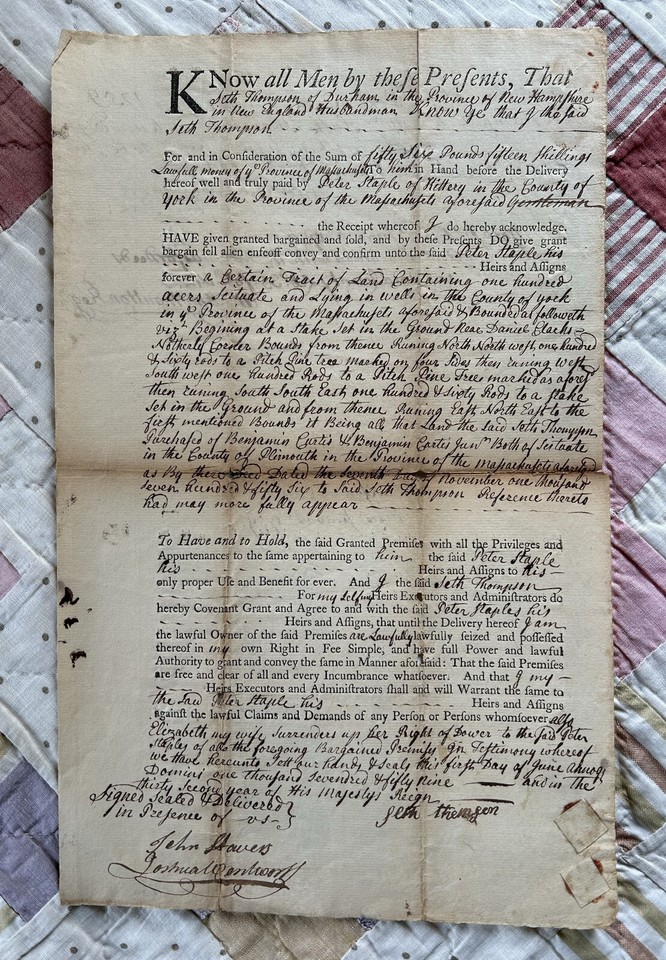 KNow all Men by these Presents, That
Seth Thompson of Durham in the Province of New Hampshire
in New England Husbandman Know Ye that I the said
Seth Thompson
For and in Consideration of the Sum of fifty Six Pounds fifteen shillings
Lawfull money of yᵉ Province of Massachusets To him in Hand before the Delivery
hereof well and truly paid by Peter Staple of Kittery in the County of
York in the Province of the Massachusets aforesaid Gentleman
the Receipt whereof I do hereby acknowledge.
HAVE given granted bargained and sold, and by these Presents DO give grant
bargain sell alien enfeoff convey and confirm unto the said Peter Staple his
Heirs and Assigns
forever a Certain Tract of Land Containing one hundred
acers Scituate and Lying in wells in the County of york
in yᵉ Province of the Massachusets aforesaid & Bounded as followeth
vizᵗ Begining at a Stake Set in the Ground Near Daniel Clarks
Notherly Corner Bounds from thence Runing North North west one hundred
& Sixty rods to a Pitch Pine tree marked on four Sides then runing west
South west one hundred Rods to a Pitch Pine Tree marked as aforesᵈ
then runing South South East one hundred & Sixty Rods to a stake
Set in the Ground and from thence Runing East North East to the
first mentioned Bounds it Being all that Land the said Seth Thompson
Purchased of Benjamin Curtis & Benjamin Curtis Junʳ Both of Scituate
in the County of Plimouth in the Province of the Massachusets aforesaid
as By there Deed Dated the Seventh Day of November one thousand
seven hundred & fifty Six to Said Seth Thompson Reference thereto
had may more fully appear
To Have and to Hold, the said Granted Premises with all the Privileges and
Appurtenances to the same appertaining to him the said Peter Staple
his Heirs and Assigns to his
only proper Use and Benefit for ever. And I the said Seth Thompson
For my Self my Heirs Executors and Administrators do
hereby Covenant Grant and Agree to and with the said Peter Staples his
Heirs and Assigns, that until the Delivery hereof I am
the lawful Owner of the said Premises are Lawfully lawfully seized and possessed
thereof in my own Right in Fee Simple, and have full Power and lawful
Authority to grant and convey the same in Manner aforesaid: That the said Premises
are free and clear of all and every Incumbrance whatsoever. And that I my
Heirs Executors and Administrators shall and will Warrant the same to
the said Peter Staple his Heirs and Assigns
against the lawful Claims and Demands of any Person or Persons whomsoever also
Elizabeth my wife Surrenders up her Right of Dower to the said Peter
Staples of all the foregoing Bargained Premises In Testimony whereof
we have hereunto Sett our hands & Seals this first Day of June Annoq
Domini one thousand Sevendred & fifty Nine and in the
thirty Second year of His Majestys Reign
Signed Sealed & Delivered
in Presence of us
Seth themson
John Stavers
Joshua Wentworth